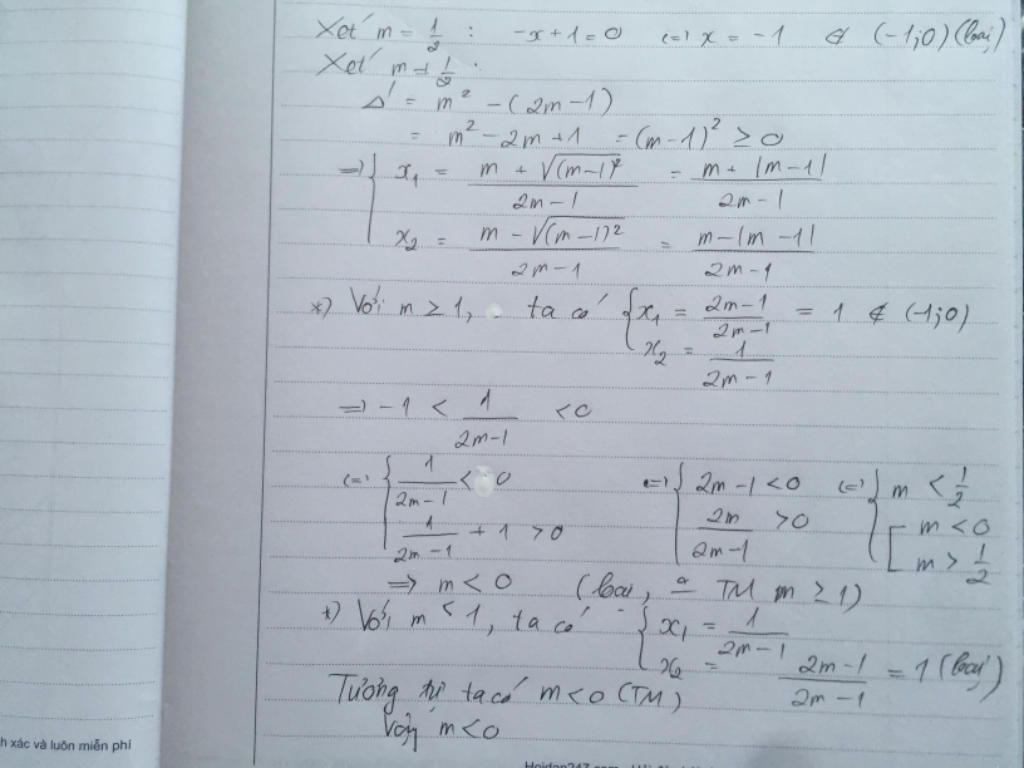 Xét m = 1/2 : -x + 1 = 0 (=) x = -1 ∉ (-1;0) (loại)
Xét m ≠ 1/2 .
Δ' = m² - (2m - 1)
= m² - 2m + 1 = (m - 1)² ≥ 0
=> { x₁ = (m + √(m-1)²)/(2m - 1) = (m + |m - 1|)/(2m - 1)
x₂ = (m - √(m-1)²)/(2m - 1) = (m - |m - 1|)/(2m - 1)
*) Với m ≥ 1, ta có { x₁ = (2m-1)/(2m-1) = 1 ∉ (-1;0)
x₂ = 1/(2m - 1)
=> -1 < 1/(2m-1) < 0
(=) { 1/(2m - 1) < 0 (=) { 2m - 1 < 0 (=) { m < 1/2
1/(2m - 1) + 1 > 0 2m/(2m - 1) > 0 [ m < 0
m > 1/2
=> m < 0 (loại, TM m ≥ 1)
*) Với m < 1, ta có { x₁ = 1/(2m - 1)
x₂ = (2m-1)/(2m-1) = 1 (loại)
Tương tự ta có m < 0 (TM)
Vậy m < 0
h xác và luôn miễn phí